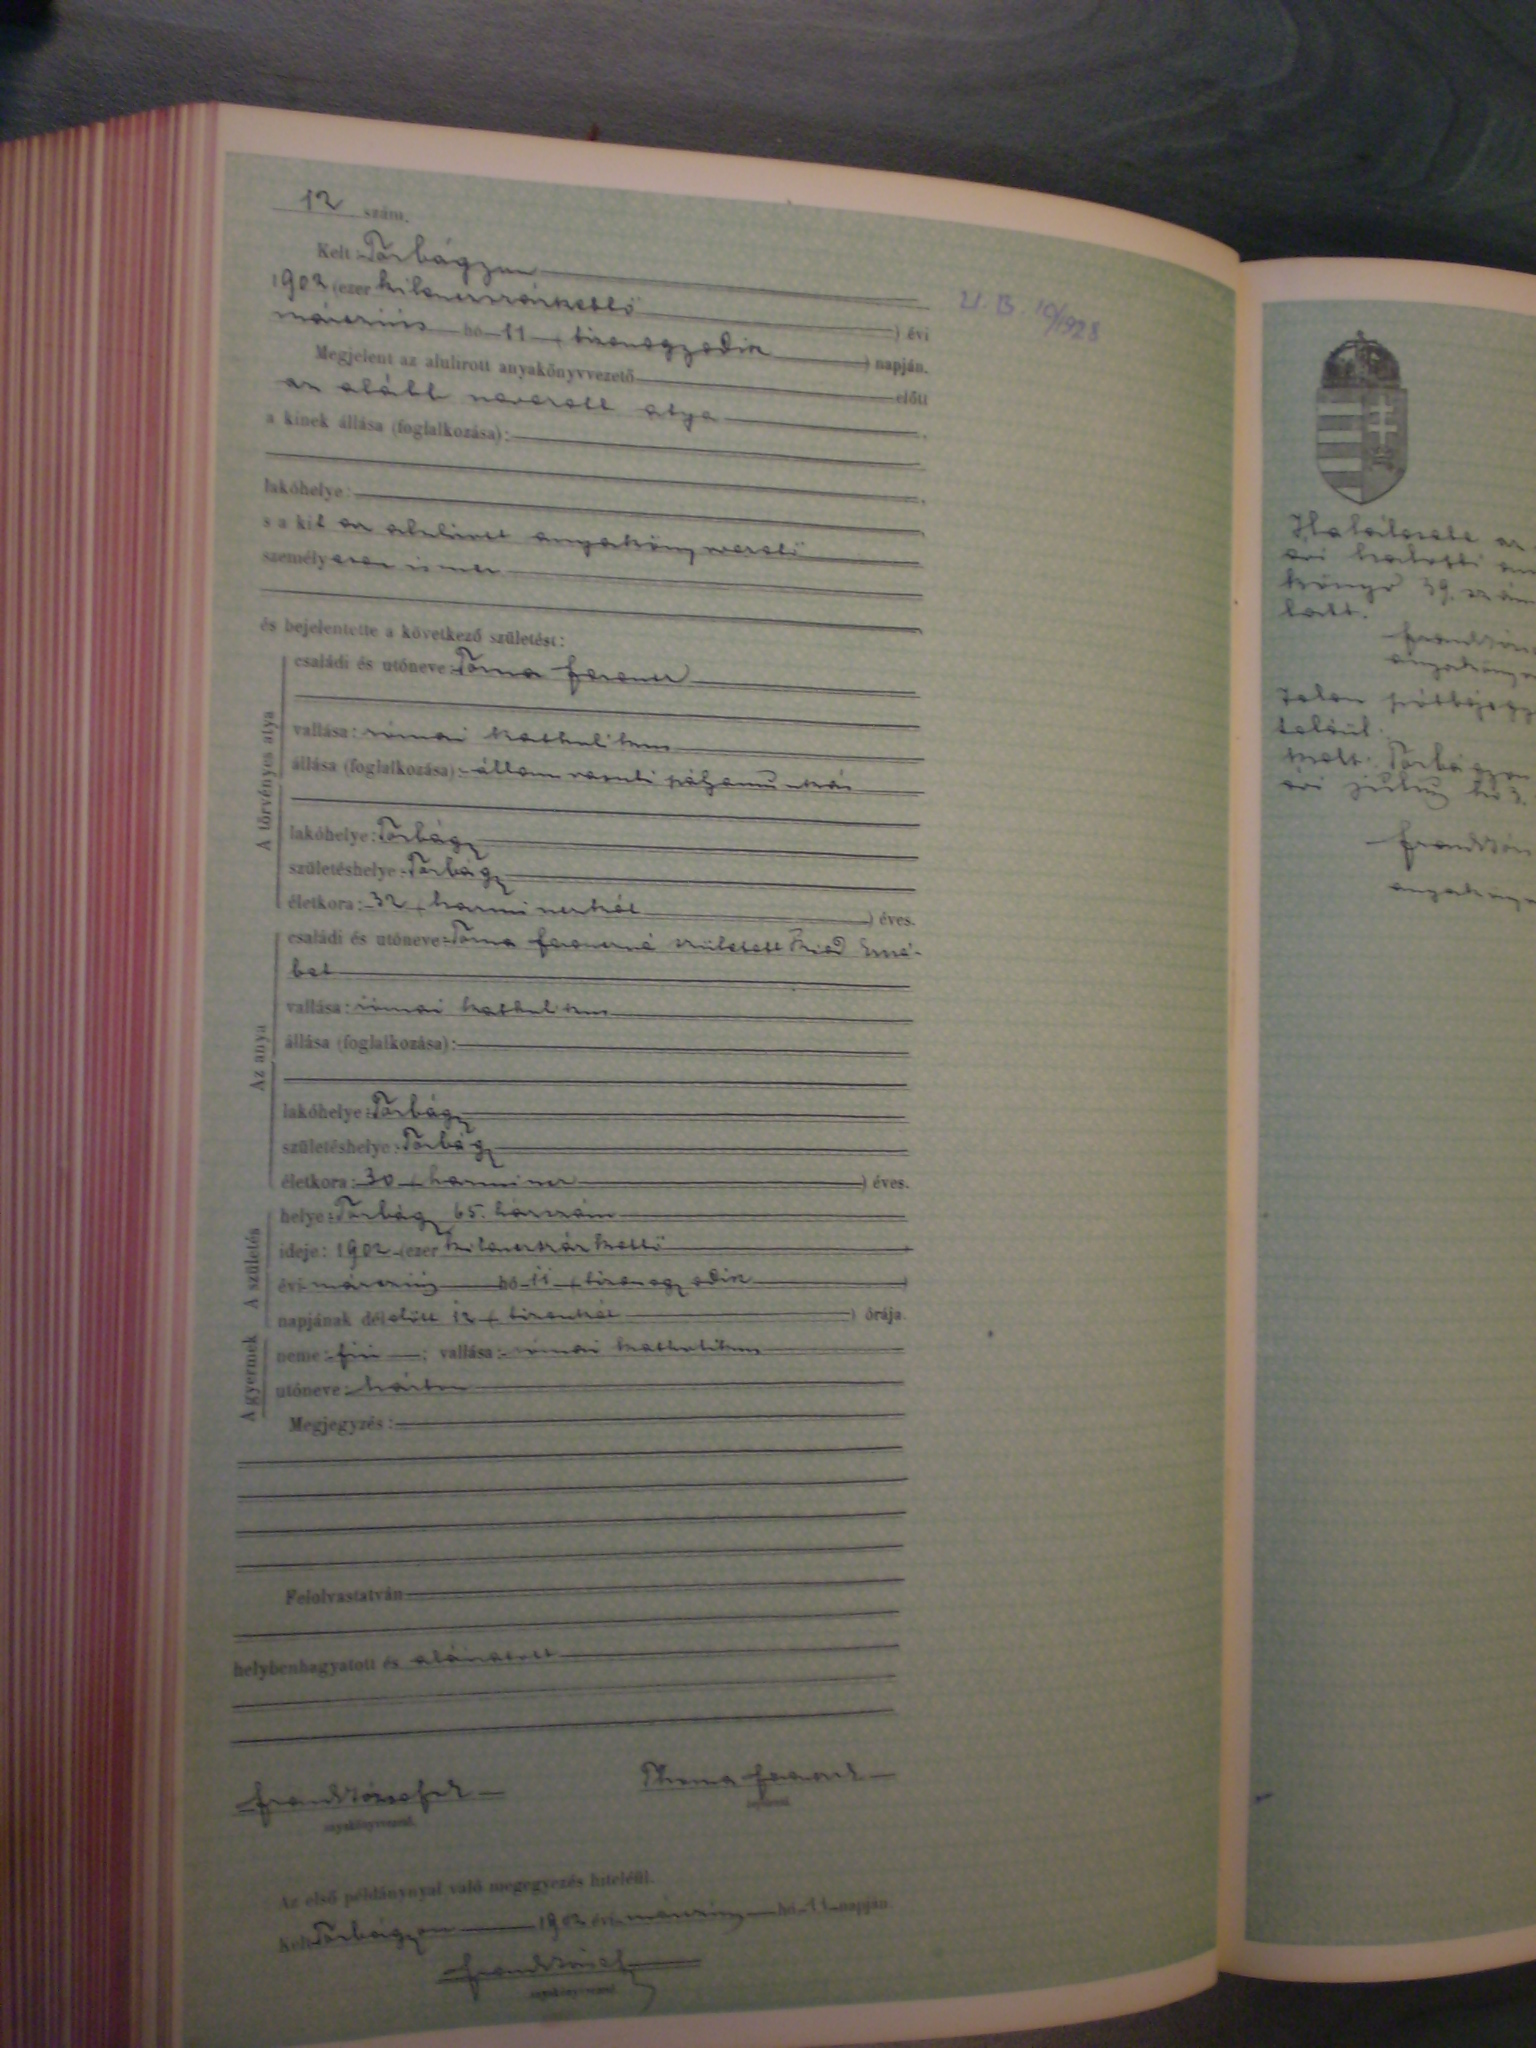 12 szám.
Kelt: Torbágyon
1902 (ezer kilencszázkettő ) évi
márczius hó 11 ( tizenegyedik ) napján.
Megjelent az alulirott anyakönyvvezető előtt
az alább nevezett atya .
a kinek állása (foglalkozása):
lakóhelye:
s a kit az alulirott anyakönyvvezető
személyesen ismer
és bejelentette a következő születést:
A törvényes atya
családi és utóneve: Toma Ferencz
vallása: római katholikus
állása (foglalkozása): állam vasuti pályamunkás
lakóhelye: Torbágy
születéshelye: Torbágy
életkora: 32 ( harminczkét ) éves.
Az anya
családi és utóneve: Toma Ferenczné született Fried Erzsé-
bet
vallása: római katholikus
állása (foglalkozása):
lakóhelye: Torbágy
születéshelye: Torbágy
életkora: 30 ( harmincz ) éves.
A születés
helye: Torbágy 65. házszám
ideje: 1902 (ezer kilenczszáz kettő
évi márczius hó 11 ( tizenegyedik )
napjának délelőtt 12 ( tizenkét ) órája.
A gyermek
neme: fiú ; vallása: római katholikus
utóneve:
Megjegyzés:
Felolvastatván
helybenhagyatott és aláiratott
Thoma Ferencz
anyakönyvvezető. bejelentő.
Az első példánynyal való megegyezés hiteléül.
Kelt Torbágyon 1902 évi márczius hó 11 napján.
anyakönyvvezető.
U. B. 10/1928
könyv 39. szám
Kelt. Torbágyon
évi július hó 3.